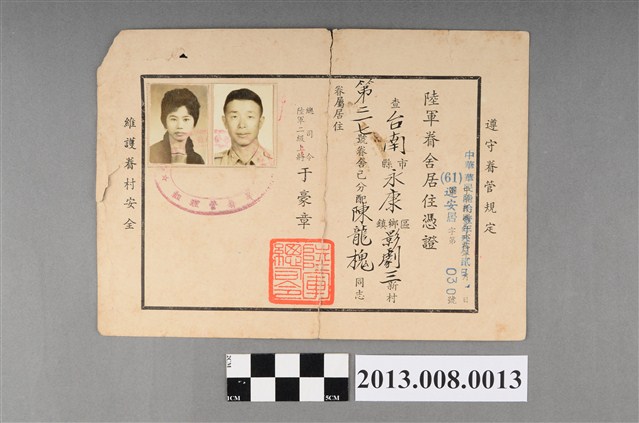 遵守眷管規定
(61)運安居字第030號
陸軍眷舍居住憑證
查台南市縣永康區鄉鎮影劇三新村
第二七號眷舍已分配陳龍槐同志
眷屬居住
總司令
陸軍二級上將
于豪章
陸軍總司令
維護眷村安全
2CM
0
1CM
5CM
2013.008.0013